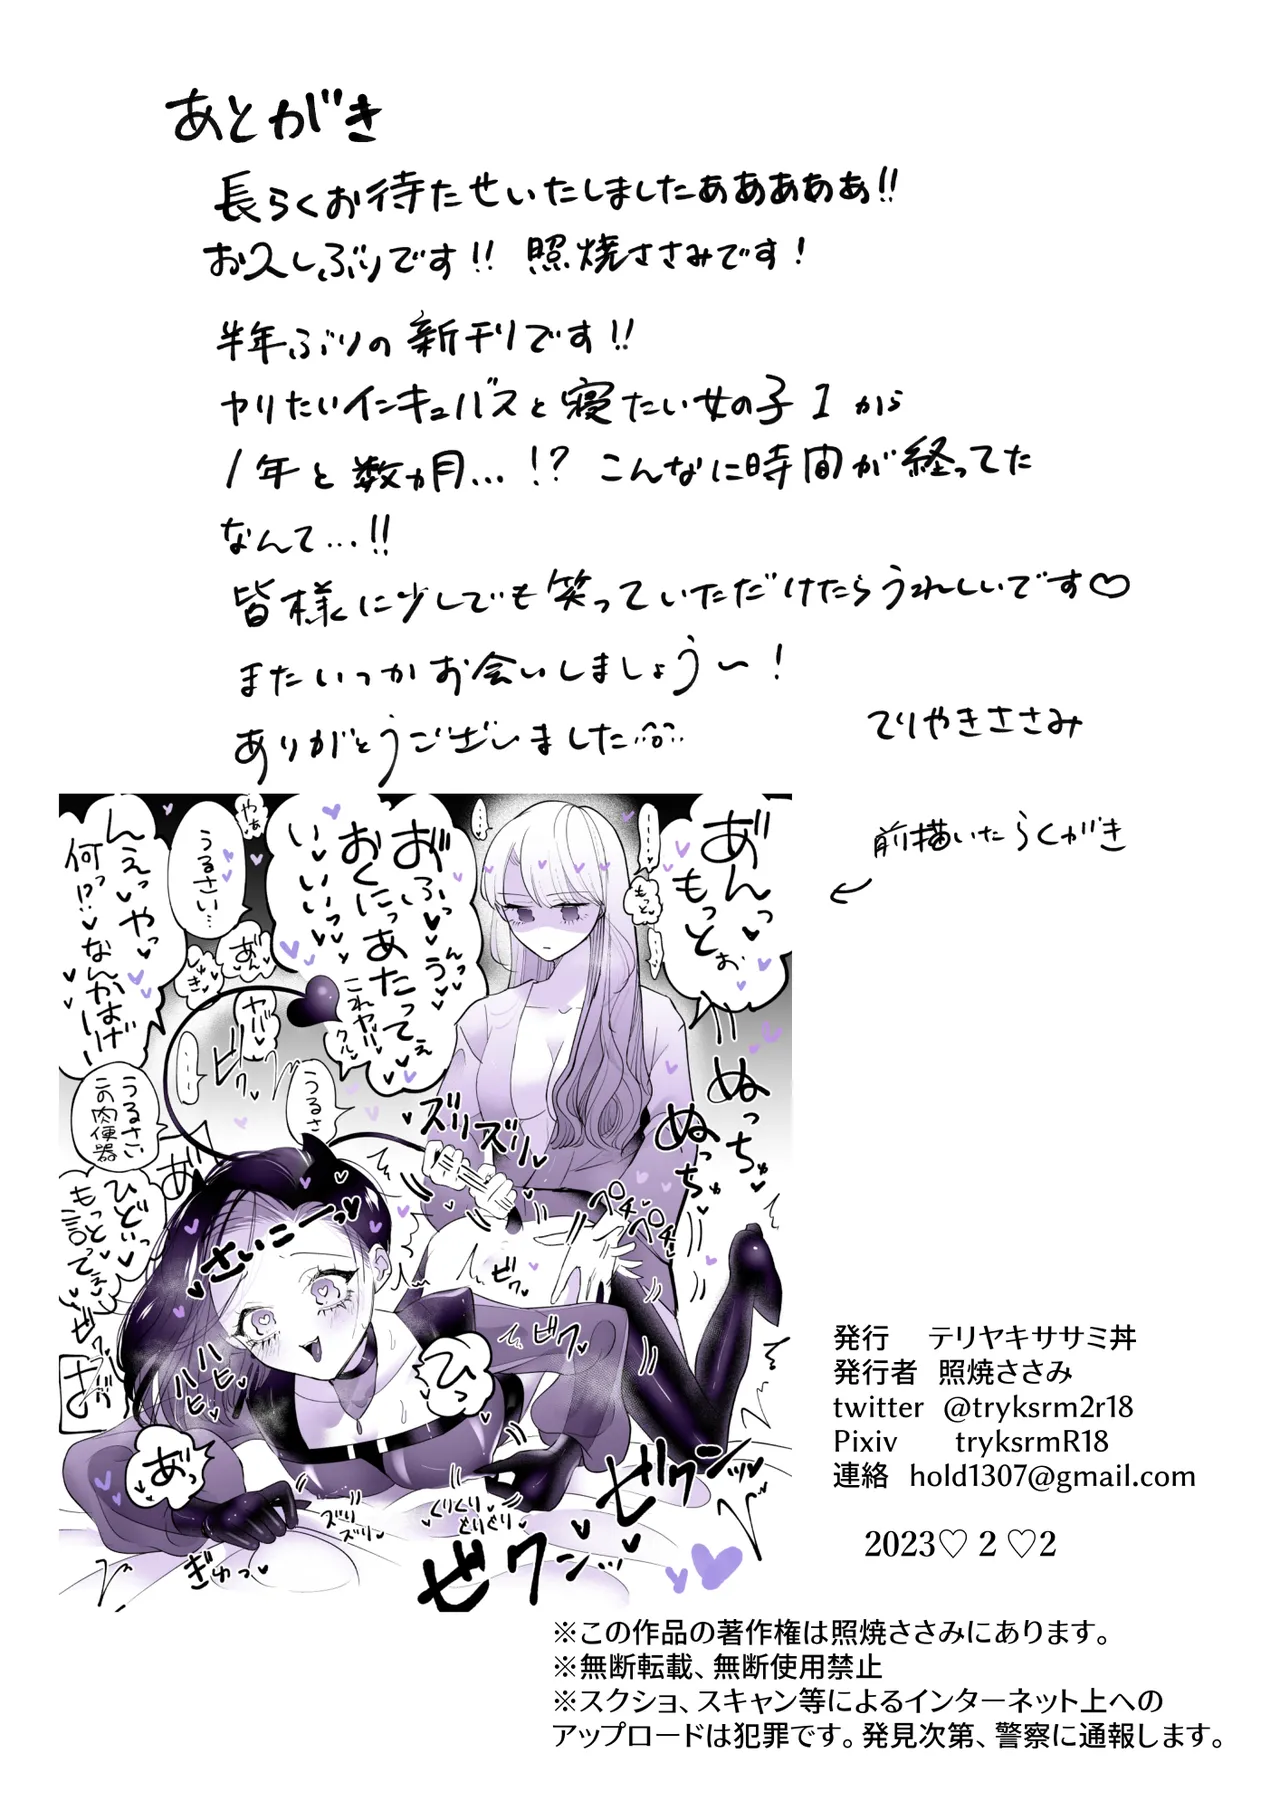 あとがき
長らくお待たせいたしましたああああぁ!!
お久しぶりです!! 照焼ささみです!
半年ぶりの新刊です!!
ヤりたいインキュバスと寝たい女の子1から
1年と数ヵ月…!? こんなに時間が経ってた
なんて…!!
皆様に少しでも笑っていただけたらうれしいです♡
またいつかお会いしましょう〜!
ありがとうございました
てりやきささみ
前描いたらくがき
あ゛んっ♥
もっとぉ
…
もっと
…
…
お゛ふっ♥うんっ
おくにっあたってぇ
い♥い♥いいっ♥
これヤバ
クルっ
やぁ
うるさい…
んえっやっ♥
何っ!?♥なんかはげし
あ゛ん
ヤバ
ビクッ
…
うるさ
うるさい
この肉便器
ひどいっ
もっと
言ってぇ
さいこーっ♥
ズリズリ♥
ぬっちゅ
ぬっちゅ
ペチペチ
ビクッ
ビクッ
ひっ
ハヒ
ハヒ
あ゛っ
ぎゅっ♥
ズリ
ズリ
ぐりぐり
とりぐり
ビクンッ
ビクンッ
発行 テリヤキササミ丼
発行者 照焼ささみ
twitter @tryksrm2r18
Pixiv tryksrmR18
連絡 hold1307@gmail.com
2023♡2♡2
※この作品の著作権は照焼ささみにあります。
※無断転載、無断使用禁止
※スクショ、スキャン等によるインターネット上への
アップロードは犯罪です。発見次第、警察に通報します。